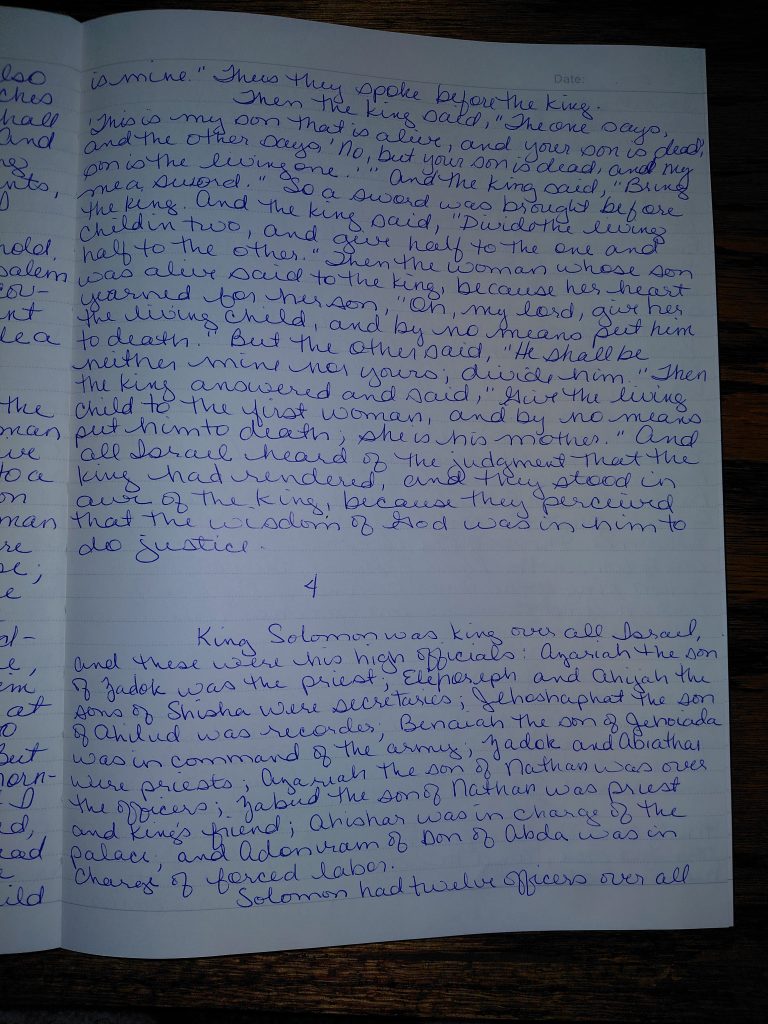 Date:
lso
ches
hall
and
ng
nts,
hold.
salem
cov-
nt
le a
the
man
we
to a
on
man
re
se;
e
d-
e,
im
at
o
But
morn-
I
ed,
ead
e
ild
is mine." Thus they spoke before the king.
Then the king said, "The one says,
'This is my son that is alive, and your son is dead',
and the other says, 'No, but your son is dead, and my
son is the living one.'" And the king said, "Bring
me a sword." So a sword was brought before
the king. And the king said, "Divide the living
child in two, and give half to the one and
half to the other." Then the woman whose son
was alive said to the king, because her heart
yearned for her son, "Oh, my lord, give her
the living child, and by no means put him
to death." But the other said, "He shall be
neither mine nor yours; divide him." Then
the king answered and said, "Give the living
child to the first woman, and by no means
put him to death; she is his mother." And
all Israel heard of the judgment that the
king had rendered, and they stood in
awe of the king, because they perceived
that the wisdom of God was in him to
do justice.
4
King Solomon was king over all Israel,
and these were his high officials: Azariah the son
of Zadok was the priest; Elihoreph and Ahijah the
sons of Shisha were secretaries; Jehoshaphat the son
of Ahilud was recorder; Benaiah the son of Jehoiada
was in command of the army; Zadok and Abiathar
were priests; Azariah the son of Nathan was over
the officers; Zabud the son of Nathan was priest
and king's friend; Ahishar was in charge of the
palace; and Adoniram of son of Abda was in
charge of forced labor.
Solomon had twelve officers over all